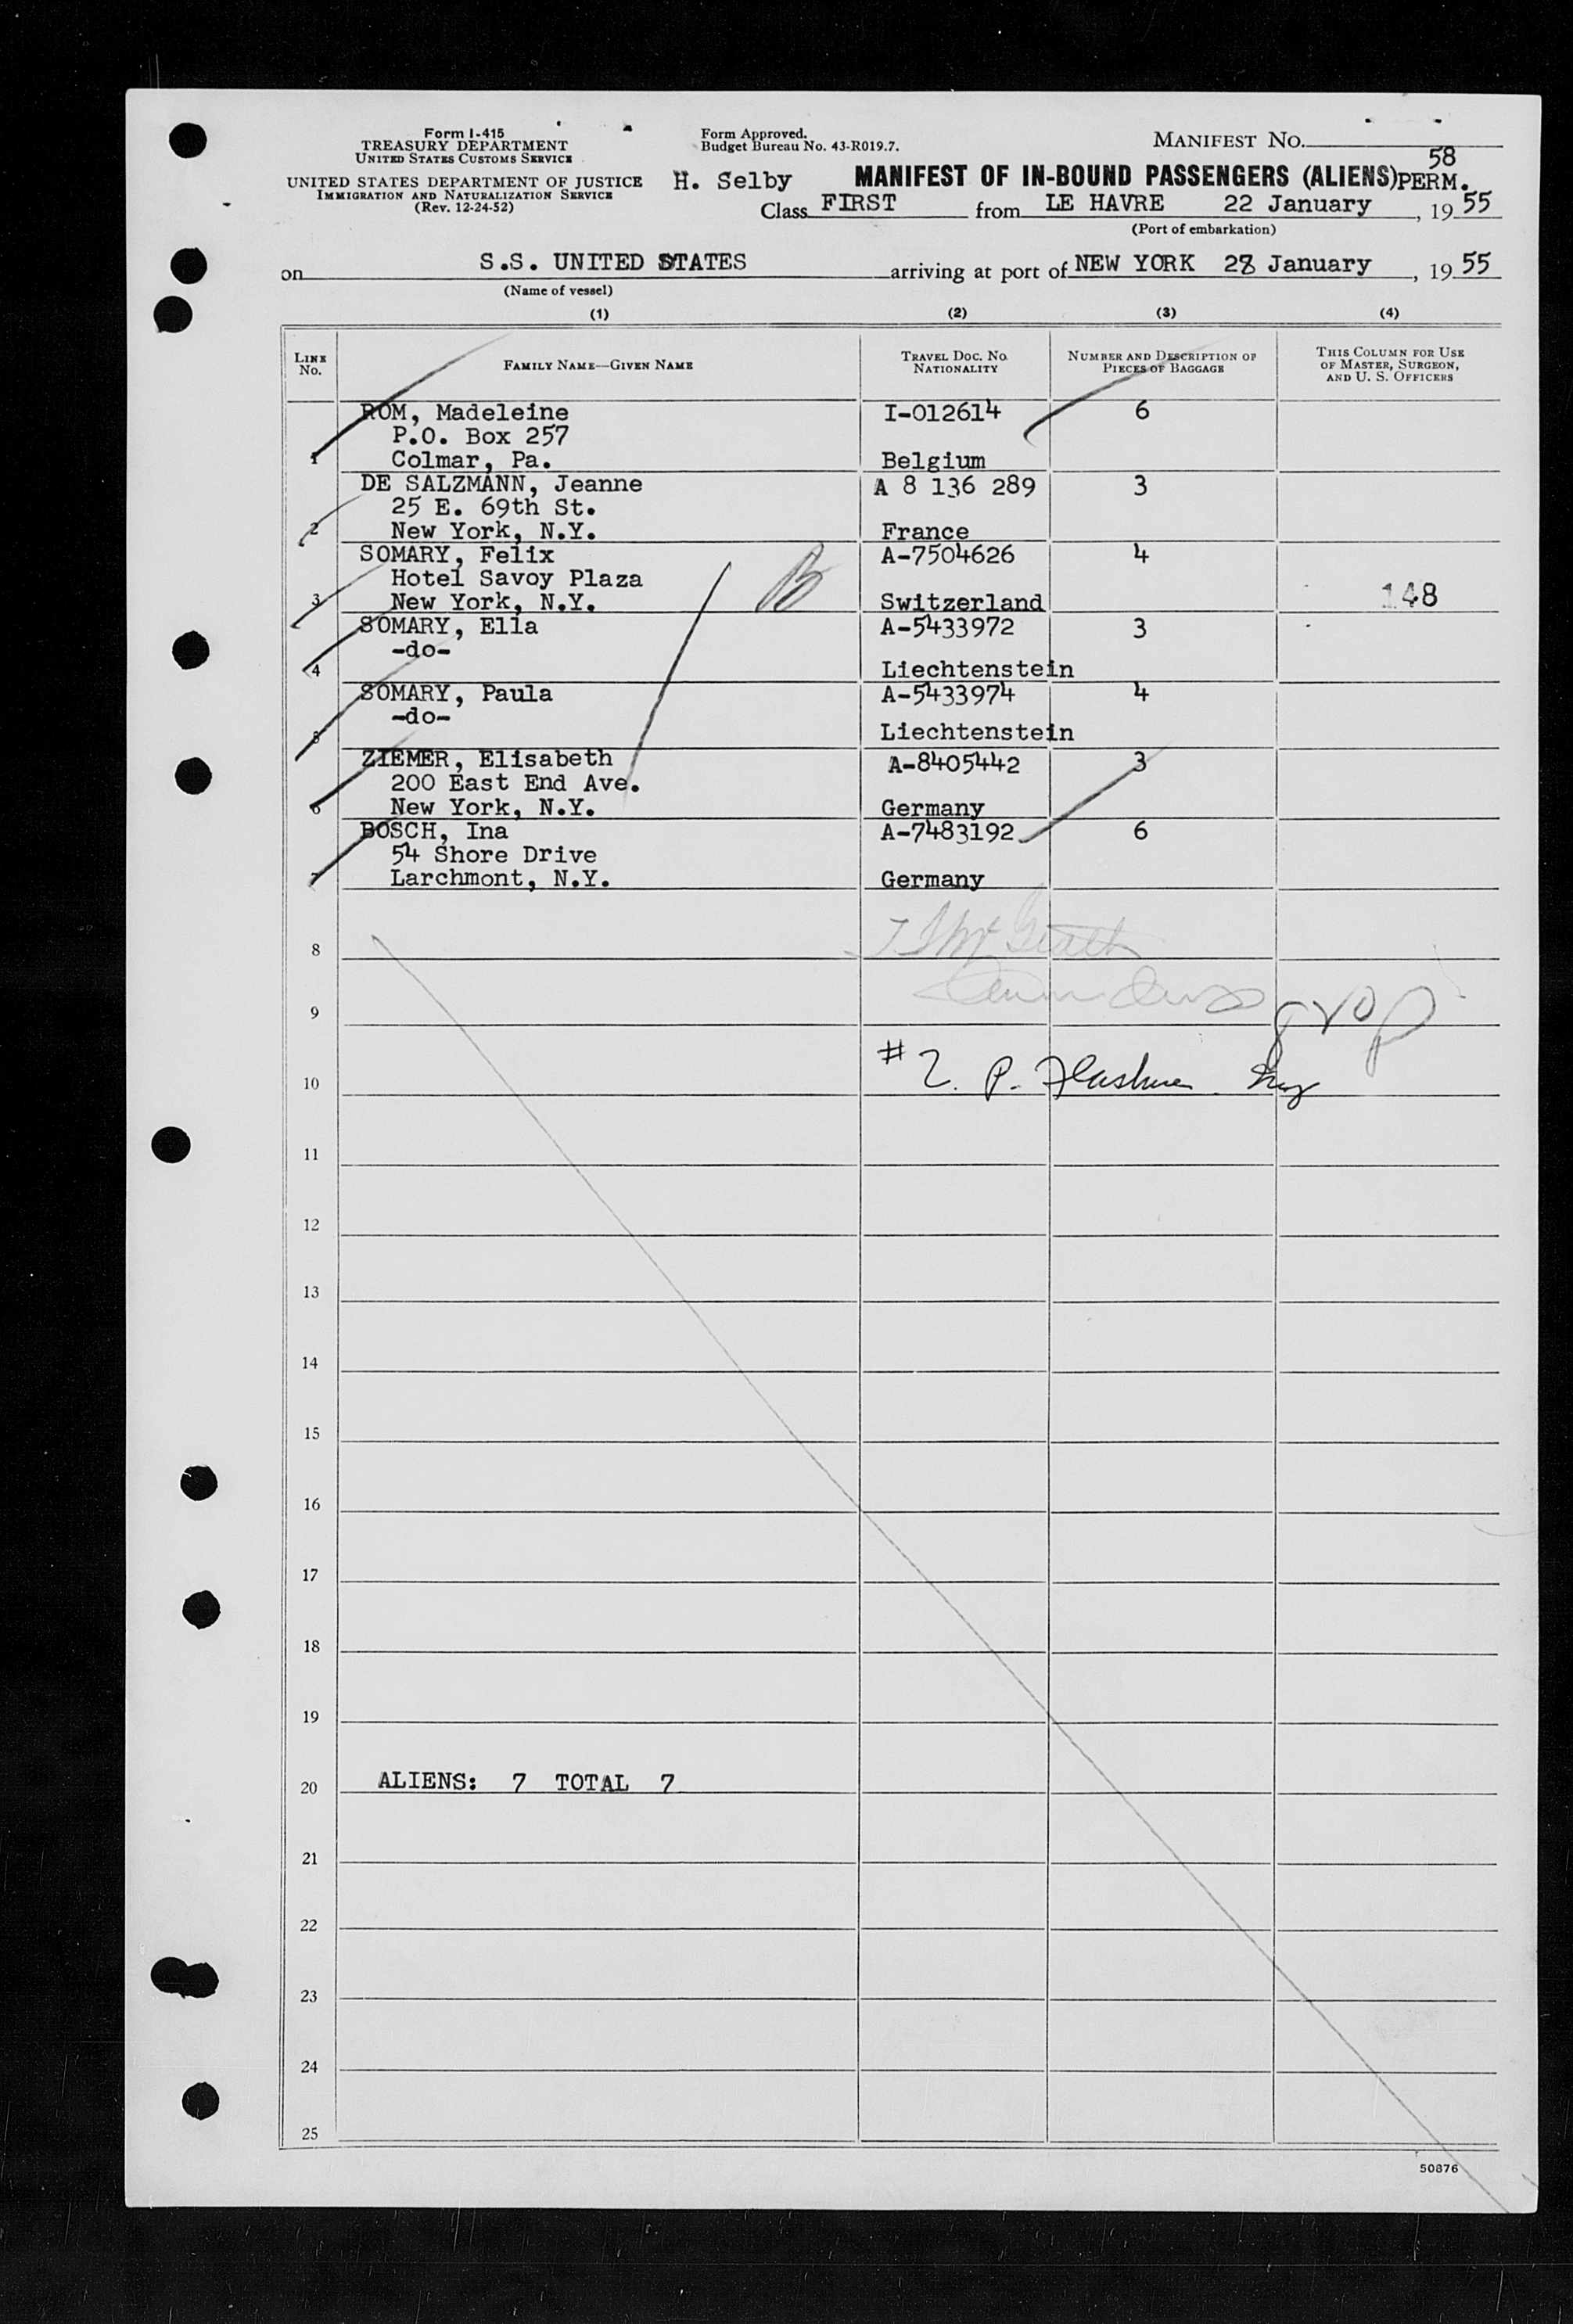 Form I-415
TREASURY DEPARTMENT
UNITED STATES CUSTOMS SERVICE
UNITED STATES DEPARTMENT OF JUSTICE
IMMIGRATION AND NATURALIZATION SERVICE
(Rev. 12-24-52)
Form Approved.
Budget Bureau No. 43-R019.7.
MANIFEST NO.
58
H. Selby MANIFEST OF IN-BOUND PASSENGERS (ALIENS) PERM.
Class FIRST from LE HAVRE 22 January, 1955
(Port of embarkation)
on S.S. UNITED STATES arriving at port of NEW YORK 28 January, 1955
(Name of vessel)
(1) (2) (3) (4)
LINE NO. FAMILY NAME—GIVEN NAME TRAVEL DOC. NO. NATIONALITY NUMBER AND DESCRIPTION OF PIECES OF BAGGAGE THIS COLUMN FOR USE OF MASTER, SURGEON, AND U. S. OFFICERS
ROM, Madeleine I-012614 6
P.O. Box 257
1 Colmar, Pa. Belgium
DE SALZMANN, Jeanne A 8 136 289 3
25 E. 69th St.
2 New York, N.Y. France
SOMARY, Felix A-7504626 4
Hotel Savoy Plaza B
3 New York, N.Y. Switzerland 148
SOMARY, Elia A-5433972 3
-do-
4 Liechtenstein
SOMARY, Paula A-5433974 4
-do-
5 Liechtenstein
ZIEMER, Elisabeth A-8405442 3
200 East End Ave.
6 New York, N.Y. Germany
BOSCH, Ina A-7483192 6
54 Shore Drive
7 Larchmont, N.Y. Germany
8
9
10 #2. P.
11
12
13
14
15
16
17
18
19
20 ALIENS: 7 TOTAL 7
21
22
23
24
25
50876